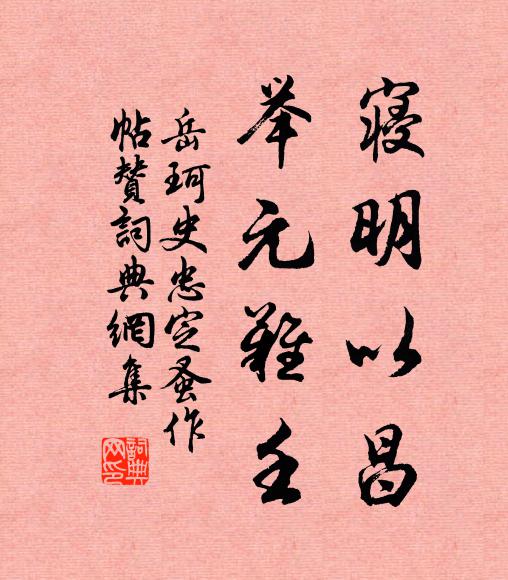 寝明以昌
举元难壬
岳珂史忠定蚤作
帖赞詞典網集
詞典网印